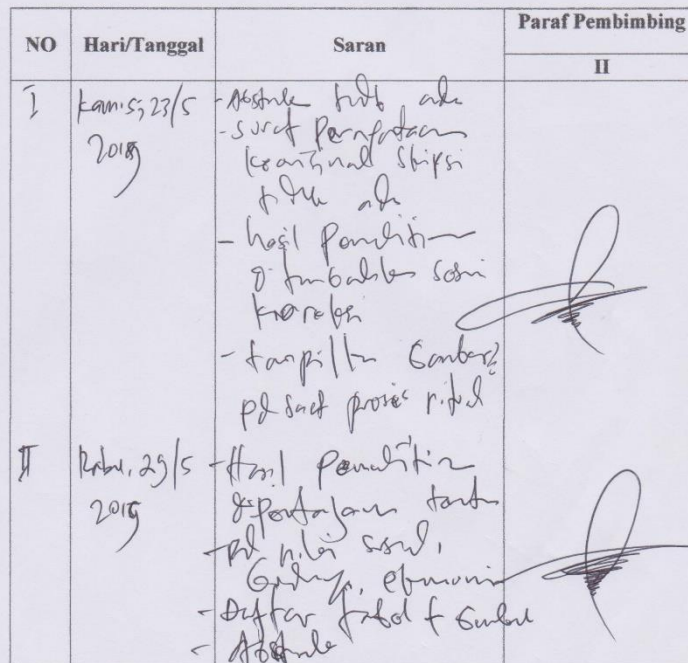 NO Hari/Tanggal Saran Paraf Pembimbing
II
I Kamis, 23/5 - Abstrak tidak ada
2019 - Surat Pernyataan
keorisinal Skripsi
tidak ada
- hasil Penelitian
ditambahkan sesuai
koreksi
- tampilkan Gambar2
pd saat proses ritual
II Rabu, 29/5 - Hasil Penelitian
2019 dipertajam
- pd nilai sosial,
ekonomi
- Daftar tabel + Gambar
- Abstrak